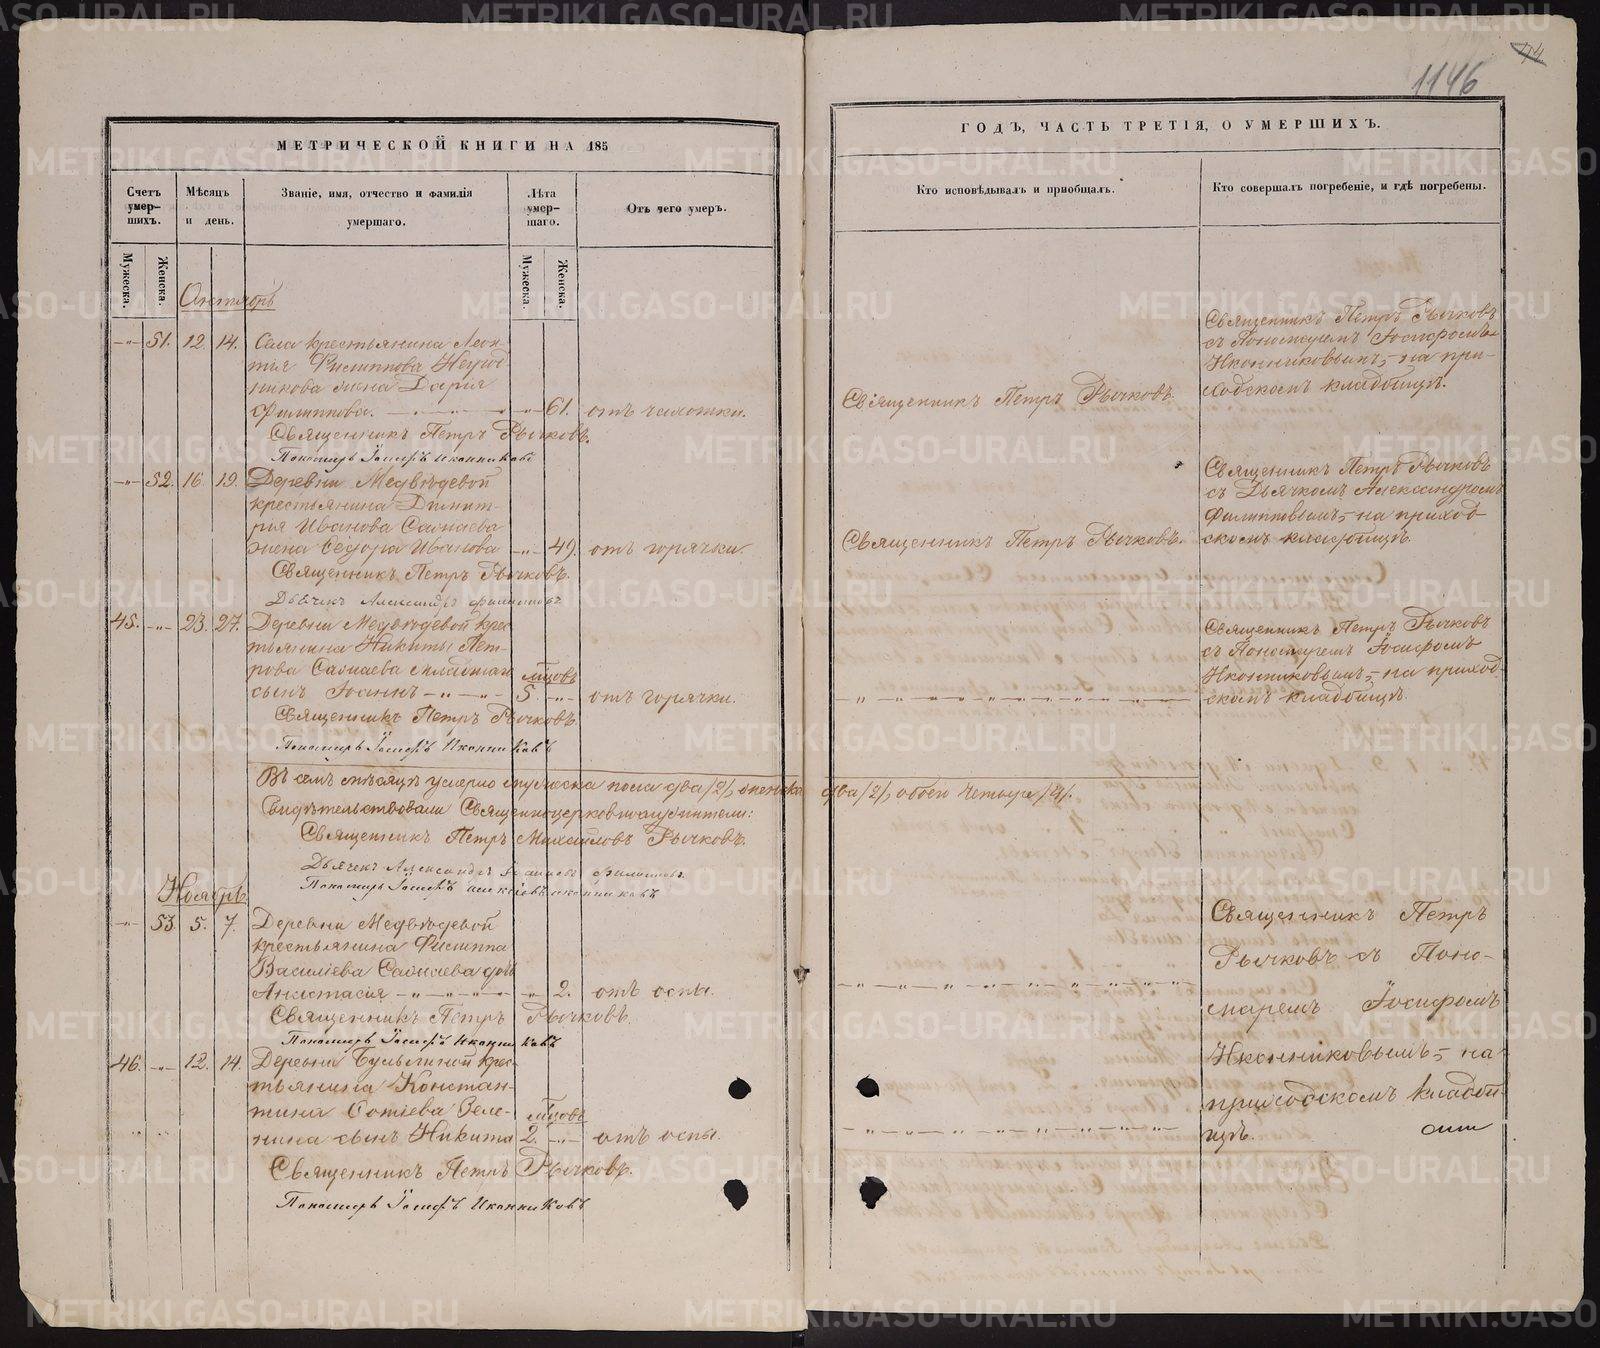 МЕТРИЧЕСКОЙ КНИГИ НА 185
Счетъ умер-шихъ.
Мѣсяцъ и день.
Званіе, имя, отчество и фамилія умершаго.
Лѣта умер-шаго.
Отъ чего умеръ.
Мужеска.
Женска.
Мужеска
Женска.
Октябрь
-"- 51. 12. 14. Села крестьянина Леон-
тія Филиппова
жена Дарія
Филиппова. 61. отъ чахотки.
Священникъ Петръ Рычковъ.
Пономарь Іосифъ Иконниковъ
-"- 52. 16. 19. Деревни Медвѣдевой
крестьянина Димит-
рія Иванова
жена Ѳедора Иванова -"- 49. отъ горячки.
Священникъ Петръ Рычковъ.
Дьячекъ Александръ Филипповъ
45. -"- 23. 27. Деревни Медвѣдевой крес-
тьянина Никиты Пет-
рова мѣсяцовъ
сынъ Іоаннъ -"- 5 -"- отъ горячки.
Священникъ Петръ Рычковъ.
Пономарь Іосифъ Иконниковъ
Въ семъ мѣсяцѣ умерло мужеска пола два /2/, женска два /2/, обоего четыре /4/.
Свидѣтельствовали Священноцерковнослужители:
Священникъ Петръ Михайловъ Рычковъ.
Дьячекъ Александръ Филипповъ
Пономарь Іосифъ Иконниковъ
Ноябрь
-"- 53. 5. 7. Деревни Медвѣдевой
крестьянина Филиппа
Василіева дочь
Анастасія -"- 2. отъ оспы.
Священникъ Петръ Рычковъ.
Пономарь Іосифъ Иконниковъ
46. -"- 12. 14. Деревни крес-
тьянина Констан-
тина Веле-
нина сынъ Никита 2. -"- отъ оспы.
Священникъ Петръ Рычковъ.
Пономарь Іосифъ Иконниковъ
1146
44
ГОДЪ, ЧАСТЬ ТРЕТІЯ, О УМЕРШИХЪ.
Кто исповѣдывалъ и пріобщалъ.
Кто совершалъ погребеніе, и гдѣ погребены.
Священникъ Петръ Рычковъ
съ Пономаремъ Іосифомъ
Иконниковымъ, на при-
ходскомъ кладбищѣ.
Священникъ Петръ Рычковъ.
Священникъ Петръ Рычковъ
съ Дьячкомъ Александромъ
Филипповымъ, на приход-
скомъ кладбищѣ.
Священникъ Петръ Рычковъ.
Священникъ Петръ Рычковъ
съ Пономаремъ Іосифомъ
Иконниковымъ, на приход-
скомъ кладбищѣ.
Священникъ Петръ
Рычковъ съ Поно-
маремъ Іосифомъ
Иконниковымъ, на
приходскомъ кладби-
щѣ.
METRIKI.GASO-URAL.RU